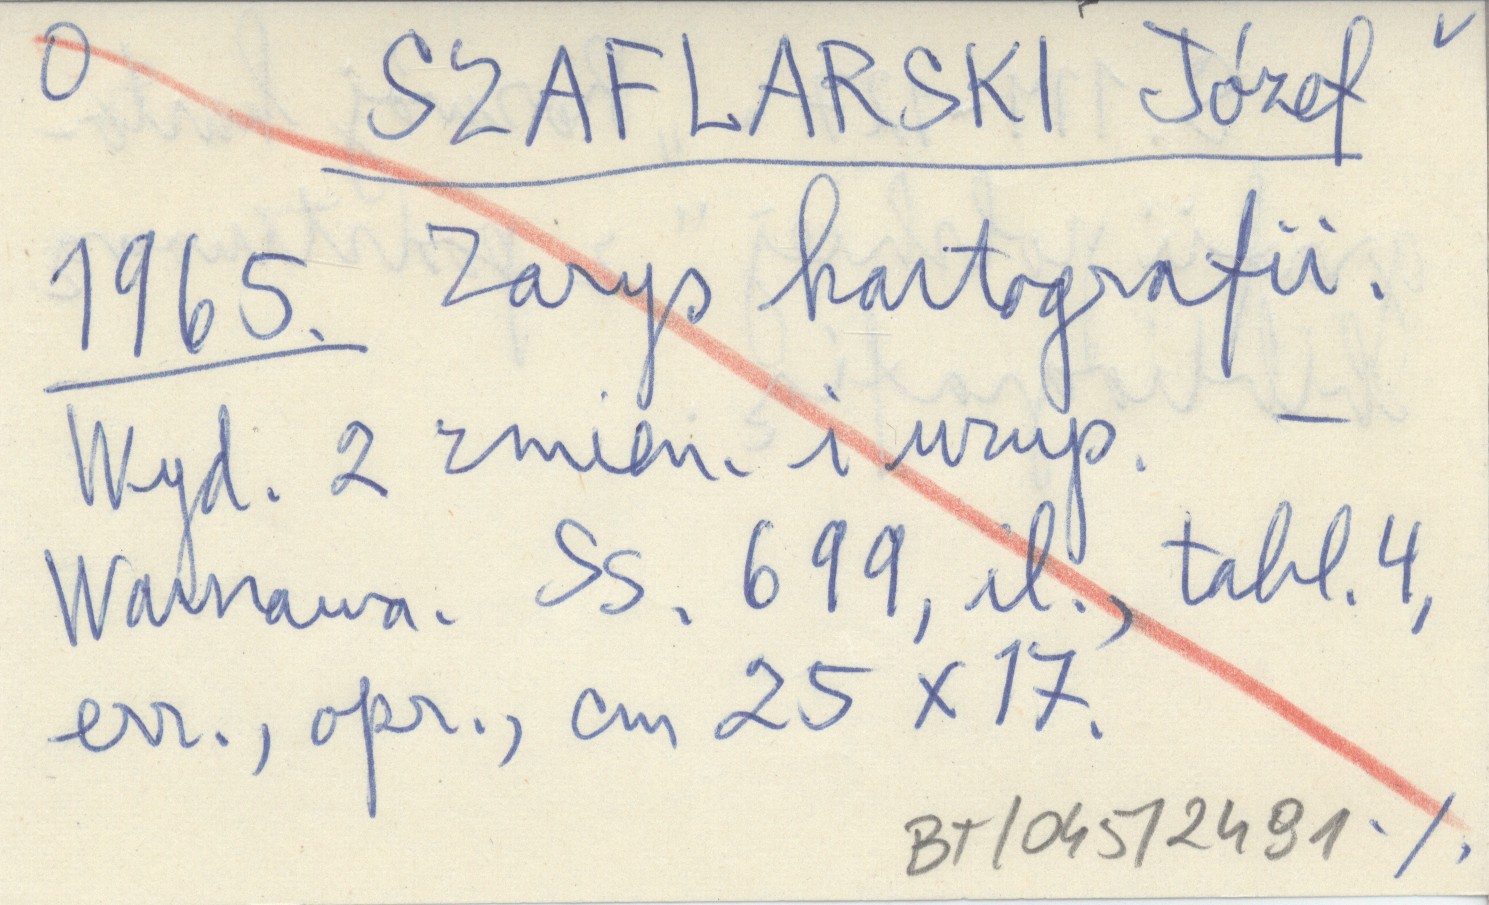 0 SZAFLARSKI Józef v
1965. Zarys kartografii.
Wyd. 2 zmien. i uzup. —
Warszawa. Ss. 699, il., tabl. 4,
err., opr., cm 25 x 17.
BT/045/2491 ·/.